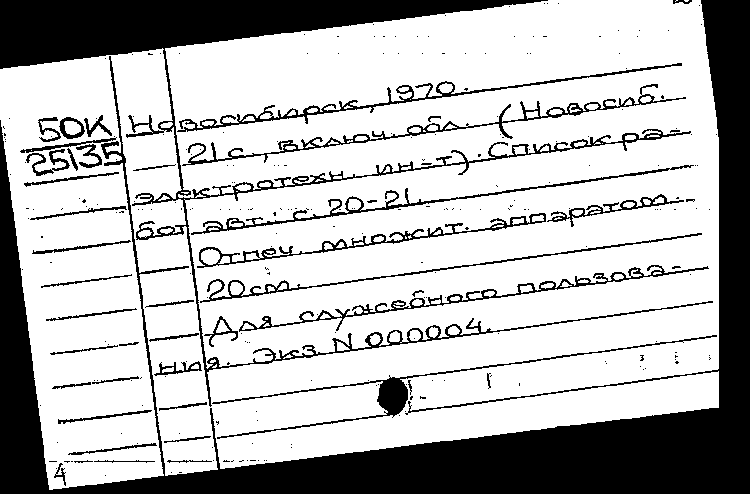 50К
25135
Новосибирск, 1970.
21 с., включ. обл. (Новосиб.
электротехн. ин-т). Список ра-
бот авт.: с. 20-21.
Отпеч. множит. аппаратом.
20 см.
Для служебного пользова-
ния. Экз N 000004.
4